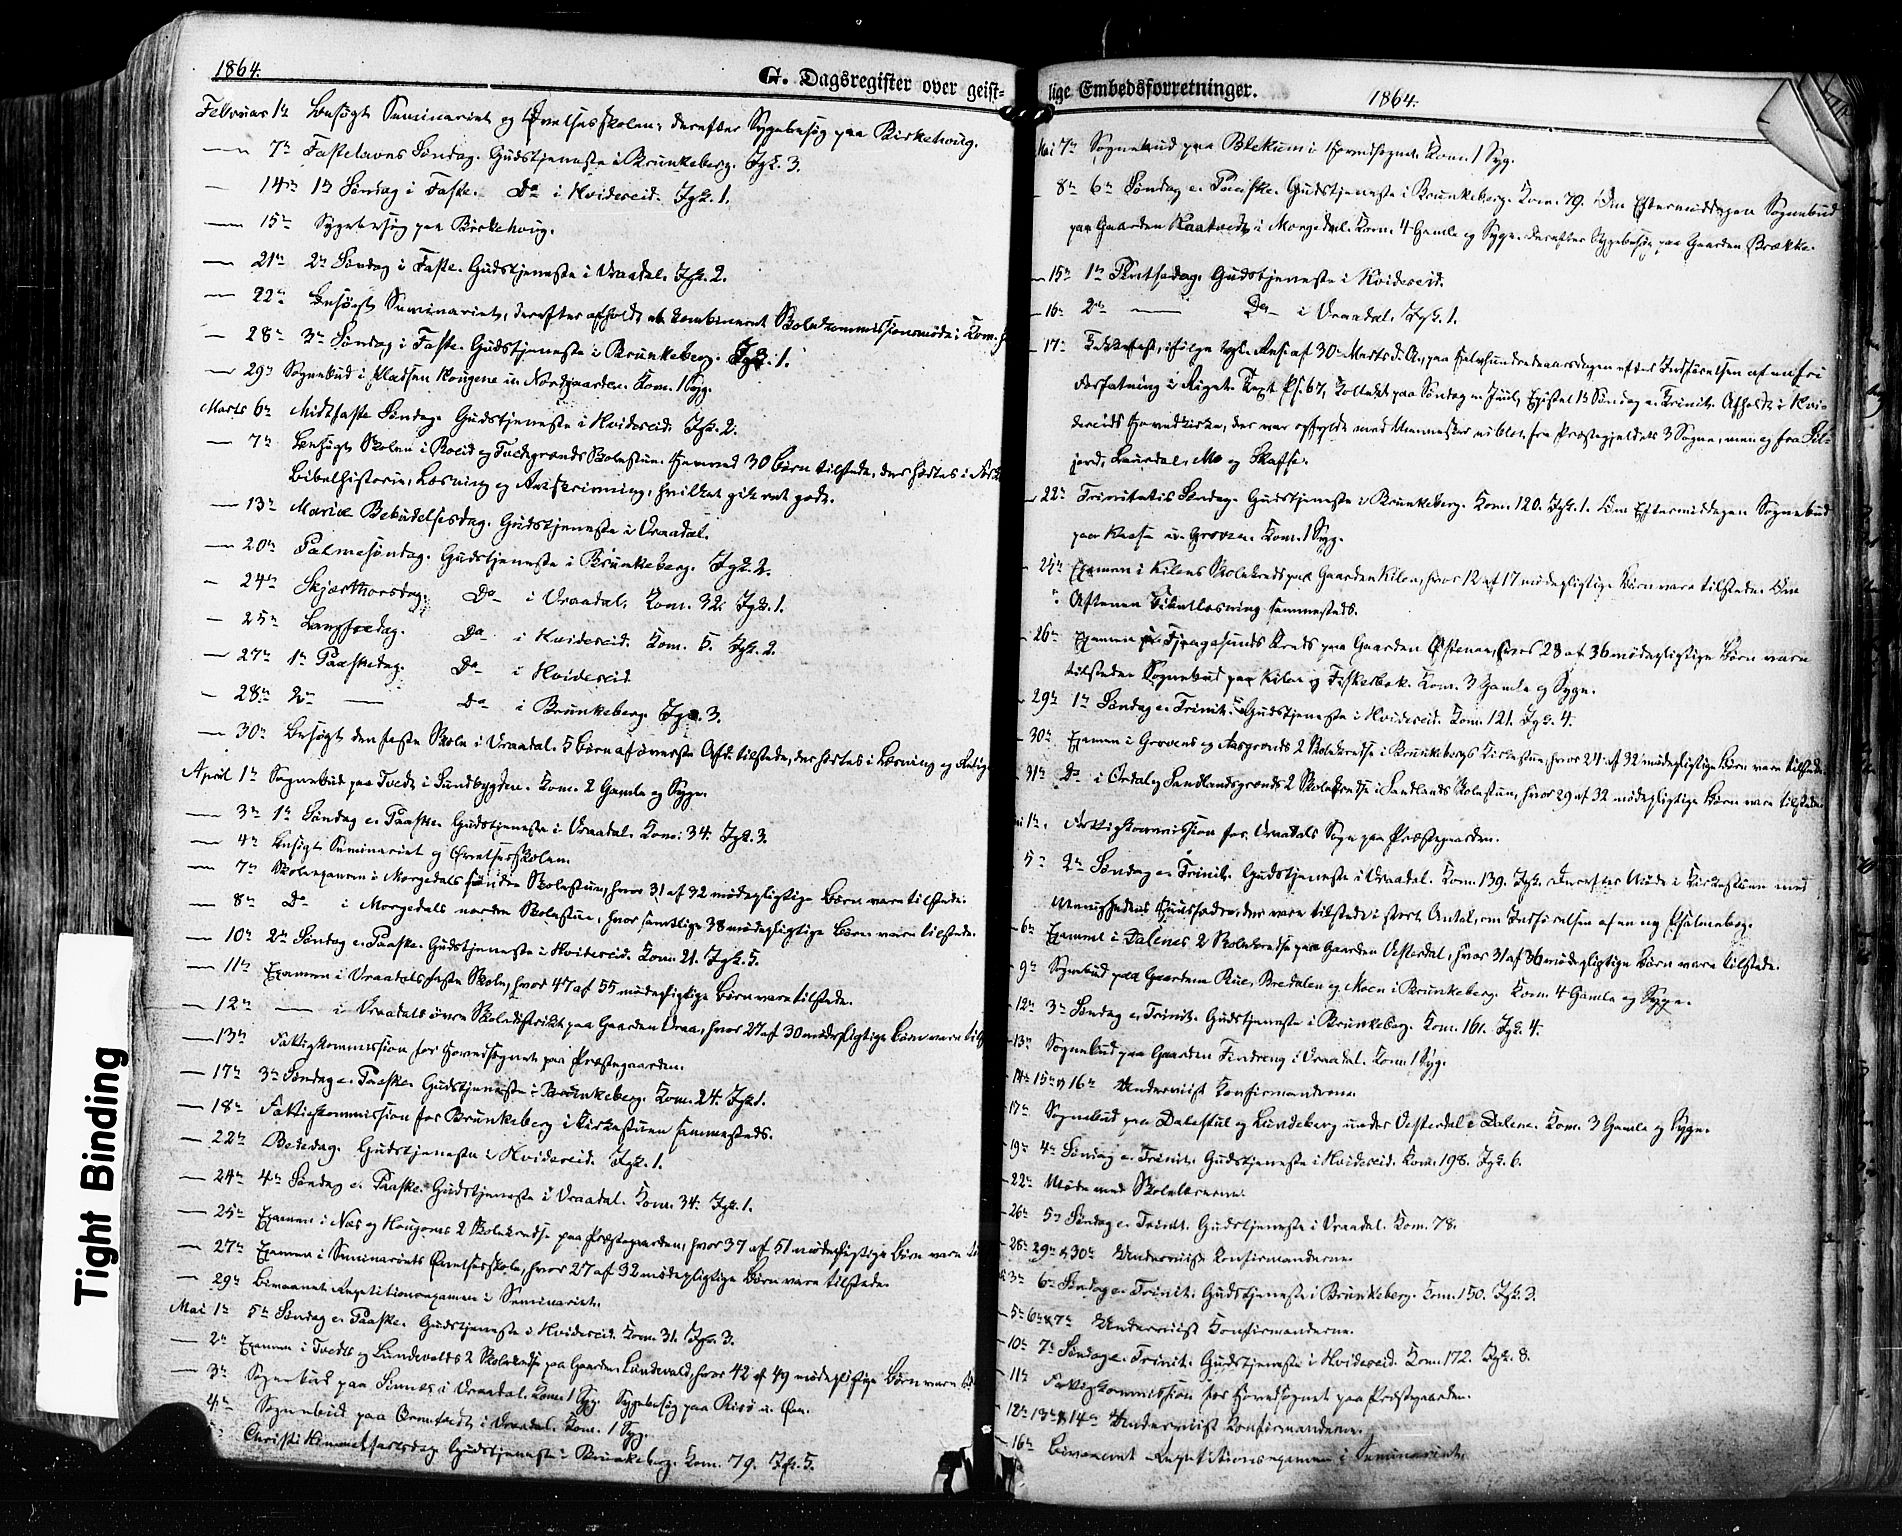 1864.
G. Dagsregister over geist-
Februar 1ste Besøgt Seminariet og Øvelsesskolen; derefter Sygebesøg paa Birkehoug.
— 7de Fastelavns Søndag. Gudstjeneste i Brunkeberg. Igk. 3.
— 14de 1ste Søndag i Faste. Do i Hvideseid. Igk. 1.
— 15de Sygebesøg paa Birkehoug.
— 21de 2den Søndag i Faste. Gudstjeneste i Vraadal. Igk. 2.
— 22de Besøgt Seminariet, derefter afholdt et kombineret Skolekommissionsmøde i
— 28de 3die Søndag i Faste. Gudstjeneste i Brunkeberg. Igk. 1.
— 29de Sognebud i Kom. 1 Syg.
Marts 6te Midtfaste Søndag. Gudstjeneste i Hvideseid. Igk. 2.
— 7de Besøgt Skolen i 30 Børn tilstede, der hørtes i
Bibelhistorie, Læsning og hvilket gik ret godt.
— 13de Mariæ Bebudelsesdag. Gudstjeneste i Vraadal.
— 20de Palmesøndag. Gudstjeneste i Brunkeberg. Igk. 2.
— 24de Skjærthorsdag. Do i Vraadal. Kom. 32. Igk. 1.
— 25de Langfredag. Do i Hvideseid. Kom. 5. Igk. 2.
— 27de 1ste Paaskedag. Do i Hvideseid
— 28de 2den — Do i Brunkeberg. Igk. 3.
— 30te Besøgt den faste Skole i Vraadal. 5 Børn af øverste Afd. tilstede, der hørtes i Læsning og Relig
April 1ste Sognebud paa Tvedt i Sundbygden. Kom. 2 Gamle og Syge.
— 3die 1ste Søndag e. Paaske. Gudstjeneste i Vraadal. Kom. 34. Igk. 3.
— 4de Besøgt Seminariet og Øvelsesskolen.
— 7de Skoleexamen i Morgedals søndre Skolestue, hvor 31 af 32 mødepligtige Børn vare tilstede.
— 8de Do i Morgedals nordre Skolestue, hvor samtlige 38 mødepligtige Børn vare tilstede.
— 10de 2den Søndag e. Paaske. Gudstjeneste i Hvideseid. Kom. 21. Igk. 5.
— 11te Examen i Vraadals faste Skole, hvor 47 af 55 mødepligtige Børn vare tilstede.
— 12te — i Vraadals øvre Skoledistrikt paa Gaarden Vraa, hvor 27 af 30 mødepligtige Børn vare tilst
— 13de Fattigkommission for Hovedsognet paa Præstegaarden.
— 17de 3die Søndag e. Paaske. Gudstjeneste i Brunkeberg. Kom. 24. Igk. 1.
— 18de Fattigkommission for Brunkeberg i Kirkestuen sammesteds.
— 22de Bededag. Gudstjeneste i Hvideseid. Igk. 1.
— 24de 4de Søndag e. Paaske. Gudstjeneste i Vraadal. Kom. 34. Igk. 1.
— 25de Examen i Næs og Hougenes 2 Skolekredse paa Præstegaarden, hvor 37 af 51 mødepligtige Børn vare
— 27de Examen i Seminariets Øvelsesskole, hvor 27 af 32 mødepligtige Børn vare tilstede.
— 29de Bivaanet Repetitionsexamen i Seminariet.
Mai 1ste 5te Søndag e. Paaske. Gudstjeneste i Hvideseid. Kom. 31. Igk. 3.
— 2den Examen i Tvedts og Lundevalds 2 Skolekredse paa Gaarden Lundevald, hvor 42 af 49 mødepligtige Børn vare
— 3die Sognebud paa i Vraadal. Kom. 1 Syg. Sygebesøg paa
— 4de Sognebud paa i Vraadal. Kom. 1 Syg.
Christi Himmelfartsdag. Gudstjeneste i Brunkeberg. Kom. 79. Igk. 5.
lige Embedsforretninger.
1864.
Mai 7de Sognebud paa Blekum i Hovedsognet. Kom. 1 Syg.
— 8de 6te Søndag e. Paaske. Gudstjeneste i Brunkeberg. Kom. 79. Om Eftermiddagen Sognebud
paa Gaarden i Morgedal. Kom. 4 Gamle og Syge. Derefter Sygebesøg paa Gaarden Brække.
— 15de 1ste Pintsedag. Gudstjeneste i Hvideseid.
— 16de 2den — Do i Vraadal. Igk. 1.
— 17de Takkefest, ifølge kgl. Res. af 30te Marts d. A., paa Halvhundredaarsdagen efter Indførelsen af en fri
Forfatning i Riget. Text Ps. 67, Kollekt paa Søndag e. Juul, Epistel 1ste Søndag e. Trinit. Afholdt i Hvi-
deseids Hovedkirke, der var opfyldt med Mennesker ei blot fra Præstegjeldets 3 Sogne, men og fra Sil-
jord, Laurdal, Mo og Skafse.
— 22de Trinitatis Søndag. Gudstjeneste i Brunkeberg. Kom. 120. Igk. 1. Om Eftermiddagen Sognebud
paa Kom. 1 Syg.
— 25de Examen i Kilens Skolekreds paa Gaarden Kilen, hvor 12 af 17 mødepligtige Børn vare tilstede. Om
Aftenen Bibellæsning sammesteds.
— 26de Examen i Fjaagesunds Kreds paa Gaarden Østenaa, hvor 28 af 36 mødepligtige Børn vare
tilstede. Sognebud paa Kilen og Fiskesbæk. Kom. 3 Gamle og Syge.
— 29de 1ste Søndag e. Trinit. Gudstjeneste i Hvideseid. Kom. 121. Igk. 4.
— 30te Examen i Grovens og Aasgrends 2 Skolekredse i Brunkebergs Kirkestue, hvor 21 af 32 mødepligtige Børn vare tilstede.
— 31te Do i Ordal og Sandlandsgrends 2 Skolekredse i Sandlands Skolestue, hvor 29 af 32 mødepligtige Børn vare tilstede.
ni 1ste. Fattigkommission for Vraadals Sogn paa Præstegaarden.
5te 2den Søndag e. Trinit. Gudstjeneste i Vraadal. Kom. 139. Igk. Derefter Møde i Kirkestuen med
Menighedens Huusfædre, der vare tilstede i stort Antal, om Indførelsen af en ny Psalmebog.
— 6te Examen i Dalenes 2 Skolekredse paa Gaarden Vesterdal, hvor 31 af 36 mødepligtige Børn vare tilstede.
— 9de Sognebud paa Gaardene Rue, Bredalen og Moen i Brunkeberg. Kom. 4 Gamle og Syge.
— 12te 3die Søndag e. Trinit. Gudstjeneste i Brunkeberg. Kom. 161. Igk. 4.
— 13de Sognebud paa Gaarden Findreng i Vraadal. Kom. 1 Syg.
— 14de 15de & 16de Underviist Konfirmanderne.
— 17de Sognebud paa Dalestul og Lundeberg under Vesterdal i Dalene. Kom. 3 Gamle og Syge.
— 19de 4de Søndag e. Trinit. Gudstjeneste i Hvideseid. Kom. 198. Igk. 6.
— 22de Møde med Skolelærerne.
— 26de 5te Søndag e. Trinit. Gudstjeneste i Vraadal. Kom. 78.
— 28de 29de & 30te Underviist Konfirmanderne.
3die 6te Søndag e. Trinit. Gudstjeneste i Brunkeberg. Kom. 150. Igk. 3.
— 5te 6te & 7de Underviist Konfirmanderne.
— 10de 7de Søndag e. Trinit. Gudstjeneste i Hvideseid. Kom. 172. Igk. 8.
— 11te Fattigkommission for Hovedsognet paa Præstegaarden.
— 12te 13de & 14de Underviist Konfirmanderne.
— 16de Bivaanet Repetitionsexamen i Seminariet.
Tight Binding